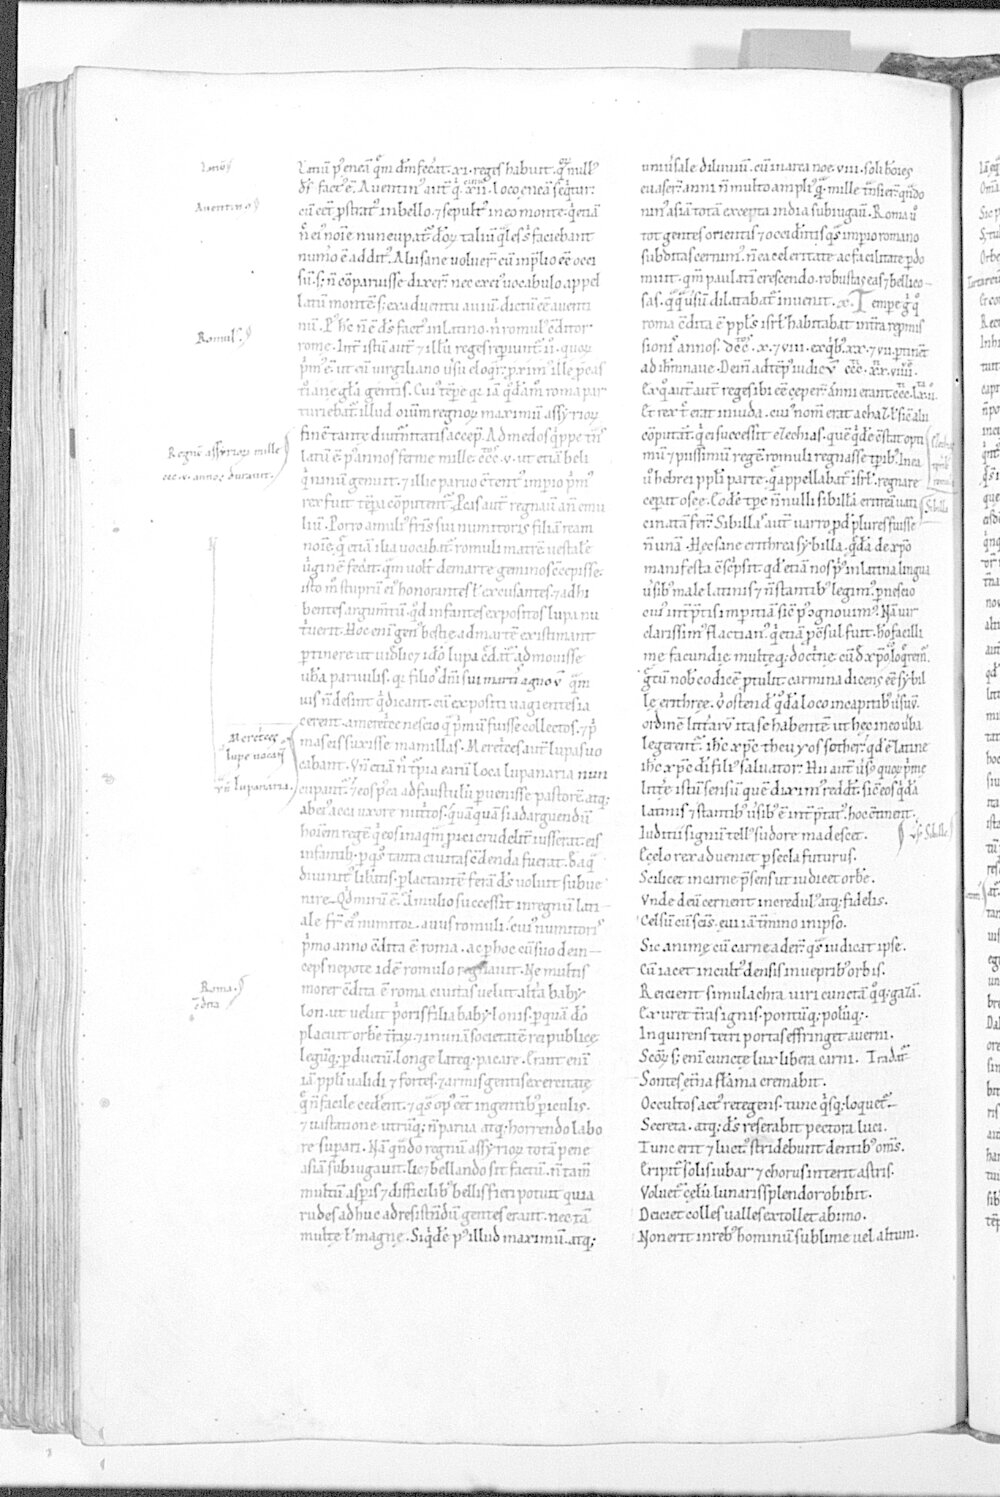 Latiū p⁹ eneā q̄m dm̄ fecer̄at. xi. reges habuit. q̄ꝝ null⁹
ds̄ fact⁹ ē. Auentin⁹ aut̄ q̄ xii. loco eneā seq̄tur.
cū eēt p̄strat⁹ in bello. ⁊ sepult⁹ in eo monte. q̄ etiā
n̄c ei⁹ noīe nuncupat̄. doꝝ taliū q̄les s̄ faciebant
num̄o ē addit⁹. Alii sane noluer̄ cū in p̄lio eē occi
sū. s; n̄ cōparuisse dixer̄. nec ex ei⁹ uocabulo appel
latū montē. s; ex aduentu auiū dictū eē auenti
nū. P⁹ hc̄ n̄ ē ds̄ fact⁹ in latino. n̄ romul⁹ cōditor
rome. Int̄ istū aut̄ ⁊ illū reges rep̄iunt̄. ii. quoꝝ
p̄m⁹ ē. ut eū uirgiliano u̓su eloqr̄. p̄xim⁹ ille p̄cas
t̓iane gl̄a gentis. Cui⁹ tēp̄e qꝛ iā q̄dāmodo roma par
turiebat̄. illud oīum regnoꝝ maximū assẏrioꝝ
finē tante diut̄nitatis accep̄. Ad medos q̄ppe t̄ns
latū ē p⁹ annos ferme mille. ccc. v. ut etiā beli
q̄ ninū genuit. ⁊ illic paruo cōtent⁹ imp̄io p̄m⁹
rex fuit temp̄a cōputent̄. Pcas aut̄ regnauit an̄ emu
liū. Porro amuli⁹ fr̄is sui numitoris filiā ream
noīe. q̄ etiā ilia uocabat̄. romuli matrē uestalē
u̓ginē fecit. q̄m uolt̄ de marte geminos cōcepisse.
isto m̊ stuprū ei⁹ honorantes ł excusantes. ⁊ adhi
bentes argumtū. qd̄ infantes expositos lupa nu
t̓uerit. Hoc enī gen⁹ bestie ad martē existimant
p̄tinere. ut uidlic̄ ⁊ ido̅ lupa cēdat̄ admouisse
ub̄a paruulis. qꝛ filios dn̄i sui marti⁹ agnoū. q̄m
uis n̄ desint q̄ dicant. cū expositi uagientes ia
cerent. a meretrice nescio q̄ p̄mū fuisse collectos. ⁊ p̄
mas eis suxisse mamillas. Meretrices aut̄ lupas uo
cabant. Vn̄ etiā n̄c t̓pia earū loca lupanaria nun
cupant̄. ⁊ eos p̄ea ad faustulū p̄uenisse pastorē. atq;
ab ei⁹ acci uxore nut̓tos. q̄uāquā si ad arguendū
hoīem regē q̄ eos in aq̄m p̄ici crudelit̄ iusserat. eis
infantib; p̄ q̄s tanta ciuitas cōdenda fuerat. de aq̄
diuinit⁹ lib̓atis. p̄ lactantē ferā ds̄ uoluit subue
nire. Qd̄ mirū ē. Amulio successit in regnū lati
ale fr̄ ei⁹ numitor. auus romuli. cui⁹ numitoris
p̄mo anno cōdita ē roma. ac p̄hoc cū suo dein
ceps nepote idē romulo regnauit. Ne multis
morer. cōdita ē roma ciuitas uelut alt̓a baby
lon. ut uelut p̄oris filia babylonis. p̄ quā do̅
placuit orbē t̄raꝝ. ⁊ in unā societatē rei publice
legūq; p̄ductū. longe lateq; pacare. Erant enī
iā pp̄li ualidi ⁊ fortes. ⁊ armis gentis exercitate
q̄ n̄ facile cedent. ⁊ q̄s op⁹ eēt ingentib⁹ p̄iculis.
⁊ uastatione utrūq; n̄ parua atq; horrendo labo
re sup̄ari. Nā q̄ndo regnū assẏrioꝝ totā pene
asiā subiugauit. lic̄ ⁊ bellando sit factū. n̄ tam̄
multū asp̄is ⁊ difficilib⁹ bellis fieri potuit. quia
rudes adhuc ad resistēdū gentes erant. nec tā
multe ł magne. Siq̄dē p⁹ illud maximū. atq;
uniu̓sale diluuiū. cū in arca noe. viii. soli hoīes
euaser̄. anni n̄ multo ampli⁹ q̄. mille t̄nsier̄. qn̄do
nin⁹ asiā totā excepta india subiugauit. Roma u̓
tot gentes orientis ⁊ occid̄ntis q̄s imp̄io romano
subditas cernim⁹. n̄ ea celeritate ac facilitate p̄do
muit. q̄m paulatī crescendo. robustas eas ⁊ bellico
sas. q̄q̄u̓sū dilatabat̄ inuenit. Tempe g̓ q̄
roma cōdita ē. pp̄ls isrl̄ habitabat in t̓ra rep̄mis
sionis annos. dccc. x. ⁊ viii. ex q̄b⁹ xx. ⁊ vii. p̄tinēt
ad ih̄m naue. Dein̄ ad tēp⁹ iudicū. ccc. xx. viiii.
Ex q̄ aut̄ aut̄ reges ibi eē ceper̄. anni erant. ccc. lxii.
Et rex t̄c erat in iuda. cui⁹ nom̄ erat achaz. ł sic̄ alii
cōputāt. q̄ ei successit ezechias. quē q̄dē cōstat opti
mū ⁊ piissimū regē romuli regnasse tp̄ib⁹. In ea
u̓ hebrei pp̄li parte q̄ appellabat̄ isrl̄. regnare
cep̄at osee. Eodē tp̄e n̄nulli sibillā eritreā uati
cinatā fer̄. Sibillas aut̄ uarro pd̄ plures fuisse
n̄ unā. Hec sane erithrea sẏbilla. q̄dā de xp̄o
manifesta cōscp̄sit. qd̄ etiā nos p̄m⁹ in latina lingua
u̓sib⁹ male latinis ⁊ n̄ stantib⁹ legim⁹. p̄ nescio
cui⁹ int̓p̄tis imp̄itiā. sic̄ p⁹ cognouim⁹. Nā uir
clarissim⁹ flactian⁹. q̄ etiā p̄cōsul fuit. ho̅ facilli
me facundie multeq; doct̓ne. cū d̄ xp̄o loq̄rem̄.
g̓cū nob̄ codicē p̄tulit. carmina dicens eē sẏbil
le erithree. u̓ ostendit q̄dā loco in capitib⁹ u̓suū.
ordinē litt̄arū ita se habentē. ut hec in eo ub̄a
legerent̄. ihc̄ xp̄c theu yos sother. qd̄ ē latine
ihc̄ xp̄c di̅ fili⁹ saluator. Hii aut̄ u̓s⁹ quoꝝ p̄me
litt̄e istū sensū quē dixim⁹ reddt̄. sic̄ eos q̄dā
latinis ⁊ stantib⁹ u̓sib⁹ ē int̓p̄tat⁹. hoc cōtinent.
Iudicii signū tell⁹ sudore madescet.
E celo rex adueniet p̄ secla futurus.
Scilicet in carne p̄sens ut iudicet orbē.
Vnde deū cernent incredul⁹ atq; fidelis.
Celsū cū scīs. eui iā t̓mino in ipso.
Sic anime cū carne ader̄. q̄s iudicat ipse.
Cū iacet incult⁹ densis in uepribꝰ orbis.
Reicient simulachra uiri cunctā q̄q; gazā.
Exuret t̄ras ignis. pontūq; polūq;.
Inquirens tetri portas effringet auerni.
Scōꝝ s; enī cuncte lux libera carni. Tradat̄
Sontes et̓na flāma cremabit.
Occultos act⁹ retegens. tunc q̄sq; loquet̄.
Secreta. atq; ds̄ reserabit pectora luci.
Tunc erit ⁊ luct⁹. stridebunt dentib⁹ oms̄.
Eripit̄ solis iubar ⁊ chorus interit astris.
Voluet̄ celū lunaris splendor obibit.
Deiciet colles ualles extollet ab imo.
Non erit in reb⁹ hominū sublime uel altum.
Auentinꝰ
Romulꝰ
Regnū assẏrioꝝ mille
ccc. v. annos durauit.
Meretrices
lupe uocant̄
vn̄ lupanaria.
Roma
cōdita
Sibilla